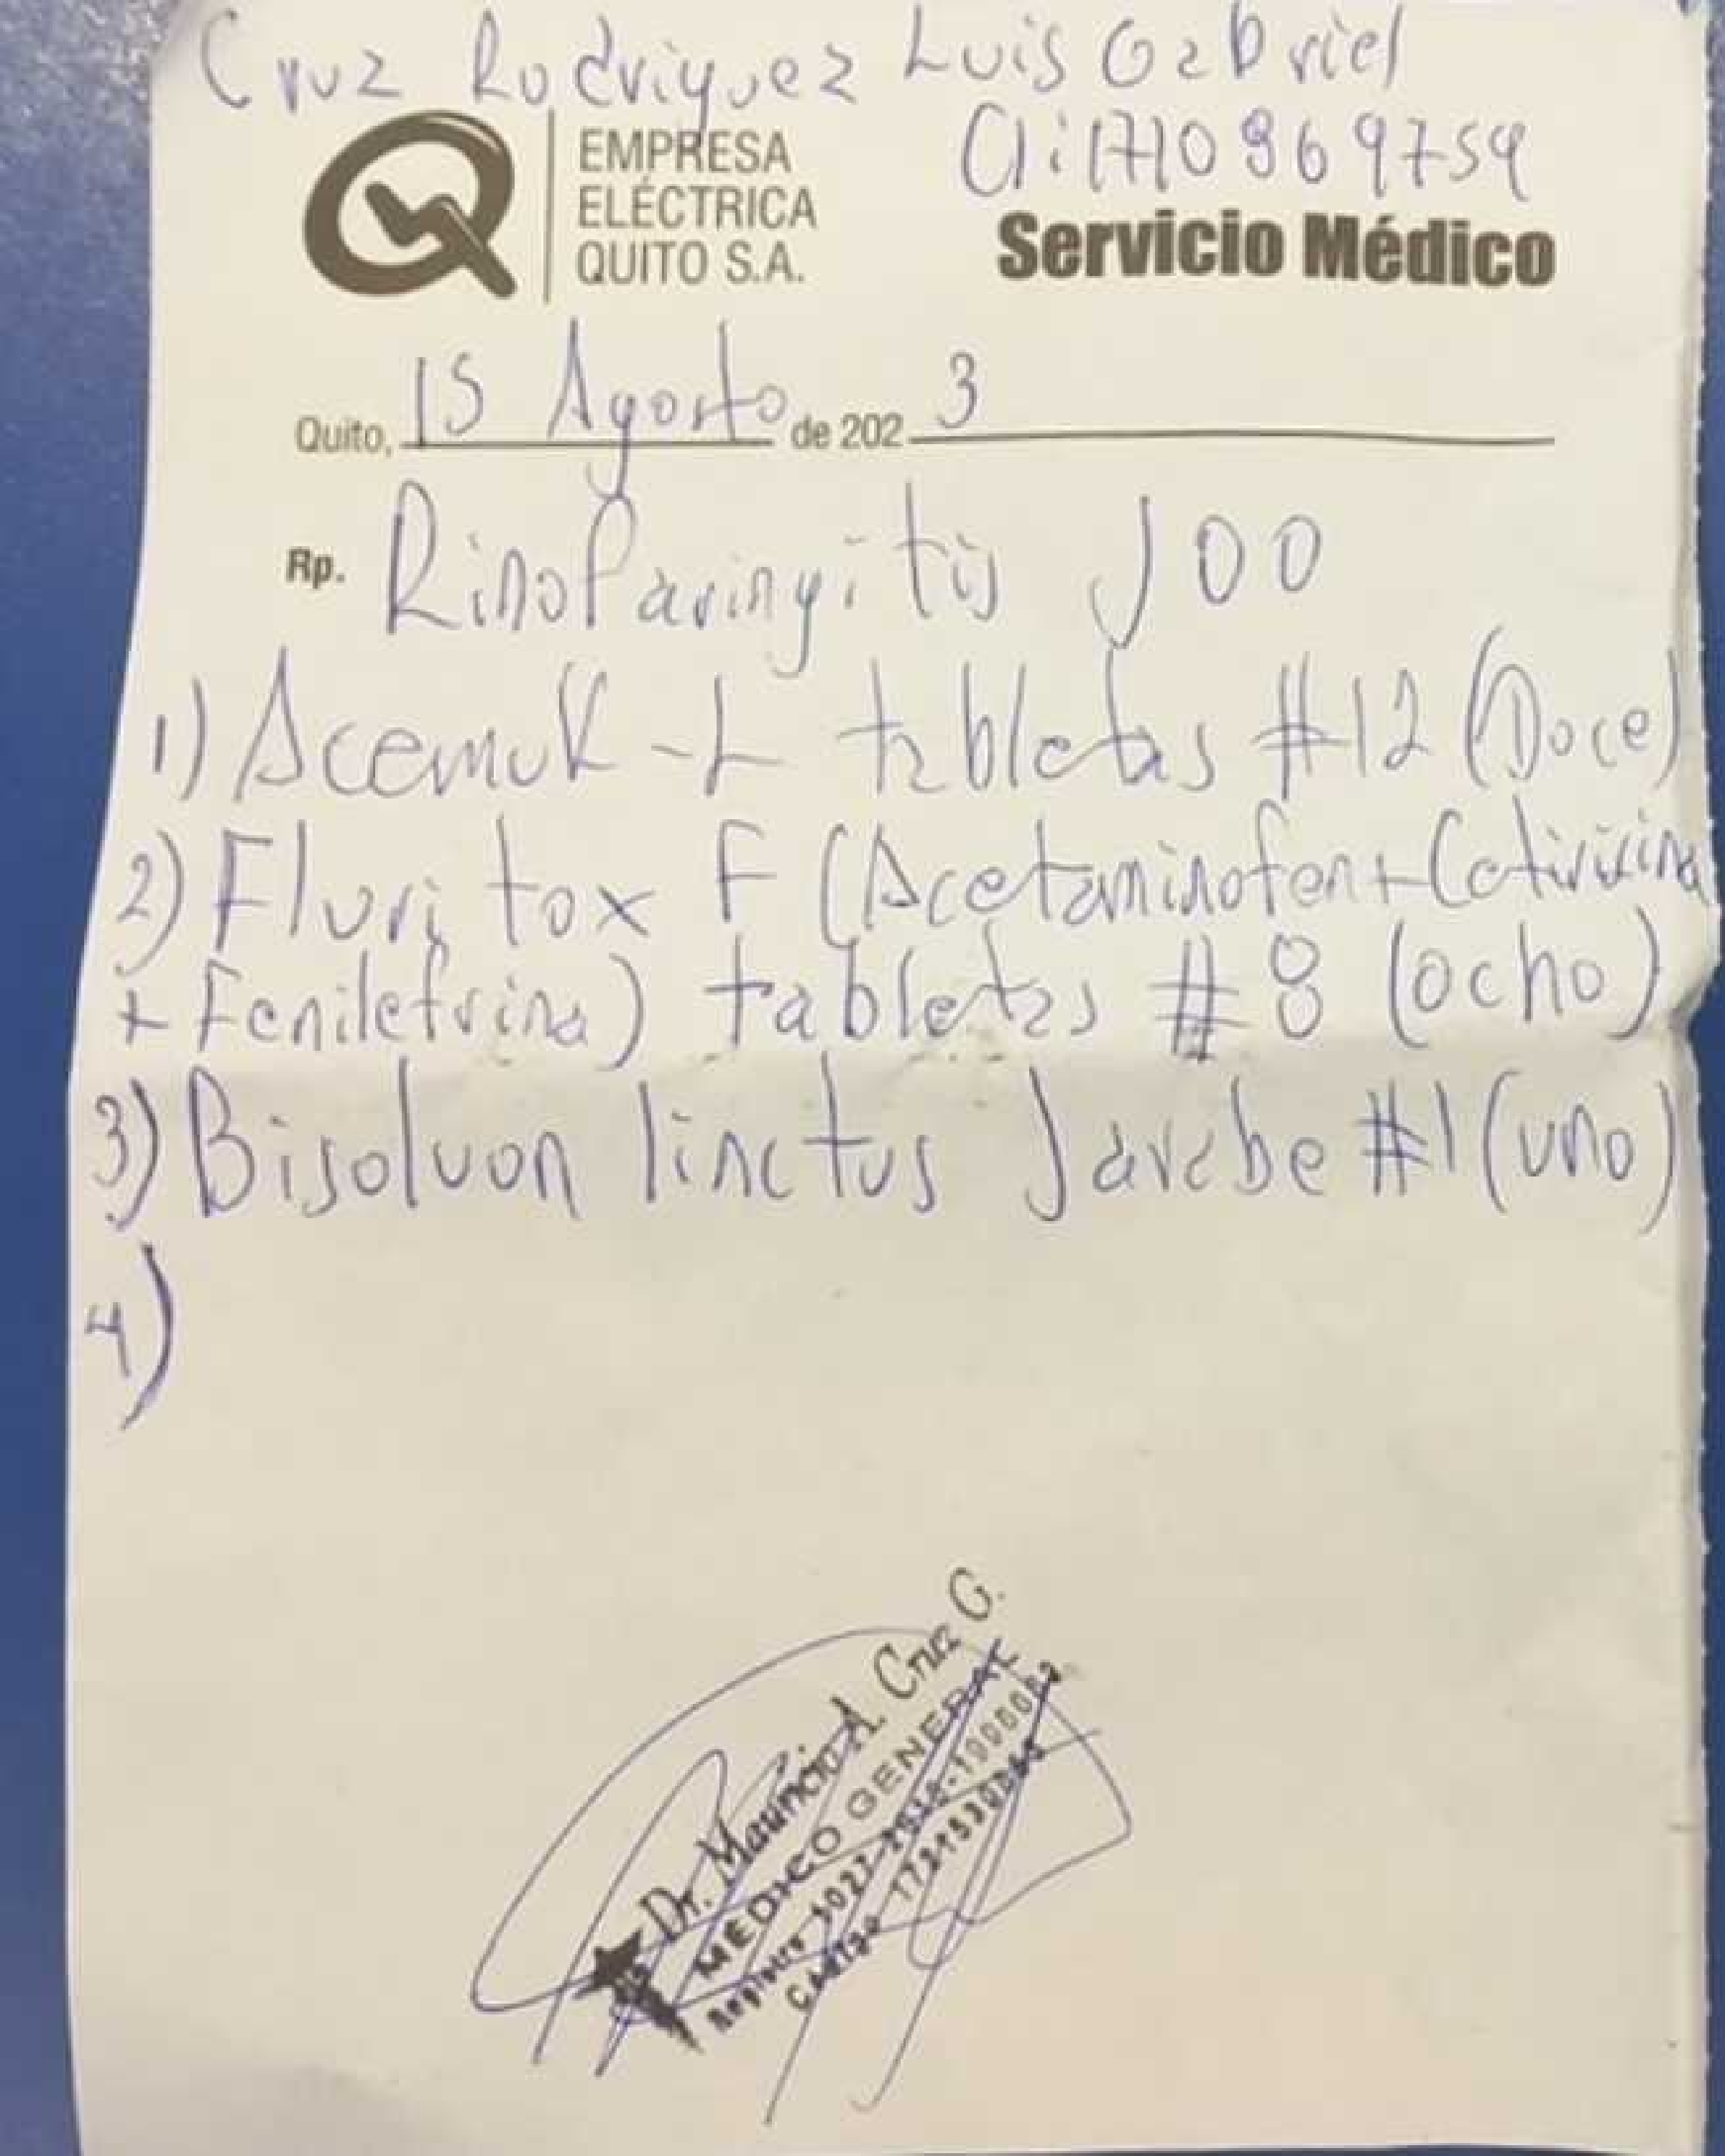 Cruz Rodriguez Luis Gabriel
CI: 1710969759
EMPRESA
ELÉCTRICA
QUITO S.A.
Servicio Médico
Quito, 15 Agosto de 2023
Rp. Rinofaringitis J00
1) Acemuk-L tabletas #12 (Doce)
2) Fluritox F (Acetaminofen + Cetirizina
+ Fenilefrina) tabletas #8 (ocho)
3) Bisolvon linctus Jarabe #1 (uno)
4)
Dr. Mauricio A. Cruz G.
MEDICO GENERAL
Registro
Código